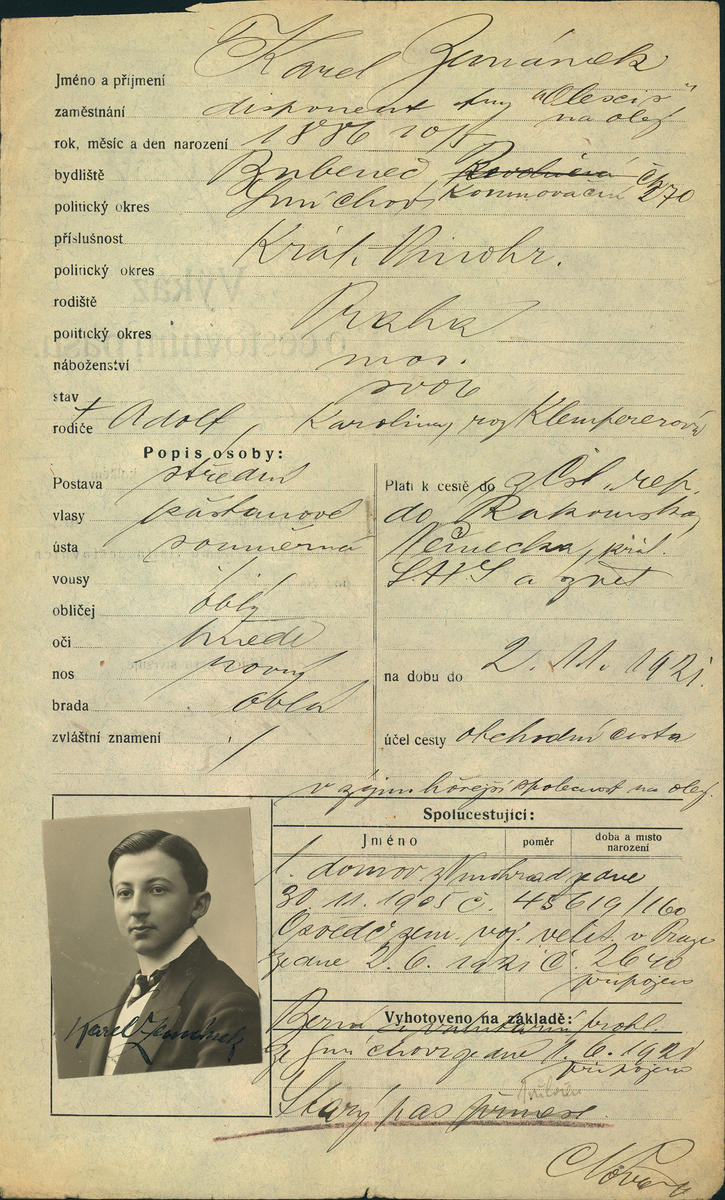 Jméno a příjmení Karel Zemánek
zaměstnání disponent fmy "Olescis"
na olej
rok, měsíc a den narození 1886 10/5
bydliště Bubeneč Revoluční čp
politický okres Smíchov 270
příslušnost Král. Vinohr.
politický okres
rodiště Praha
politický okres
náboženství mos.
stav svob
rodiče † Adolf, Karolina, roz Klempererová
Popis osoby:
Postava střední
vlasy kaštanové
ústa souměrná
vousy /
obličej oblý
oči hnědé
nos rovný
brada oblá
zvláštní znamení ./
Platí k cestě do z Čsl. rep.
do Rakouska,
Německa, král.
SHS a zpět
na dobu do 2. 11. 1921.
účel cesty obchodní cesta
v zájmu hořejší společnosti na olej.
Spolucestující:
Jméno poměr doba a místo narození
1. domov. z Vinohrad ze dne
30. 11. 1905 č. 45619/160
Osvědč. zem. voj. velit. v Praze
ze dne 2. 6. 1921 č. 2640
připojeno
Vyhotoveno na základě:
Berní prohl.
ze Smíchova ze dne 1. 6. 1921
připojeno
Starý pas
Karel Zemánek